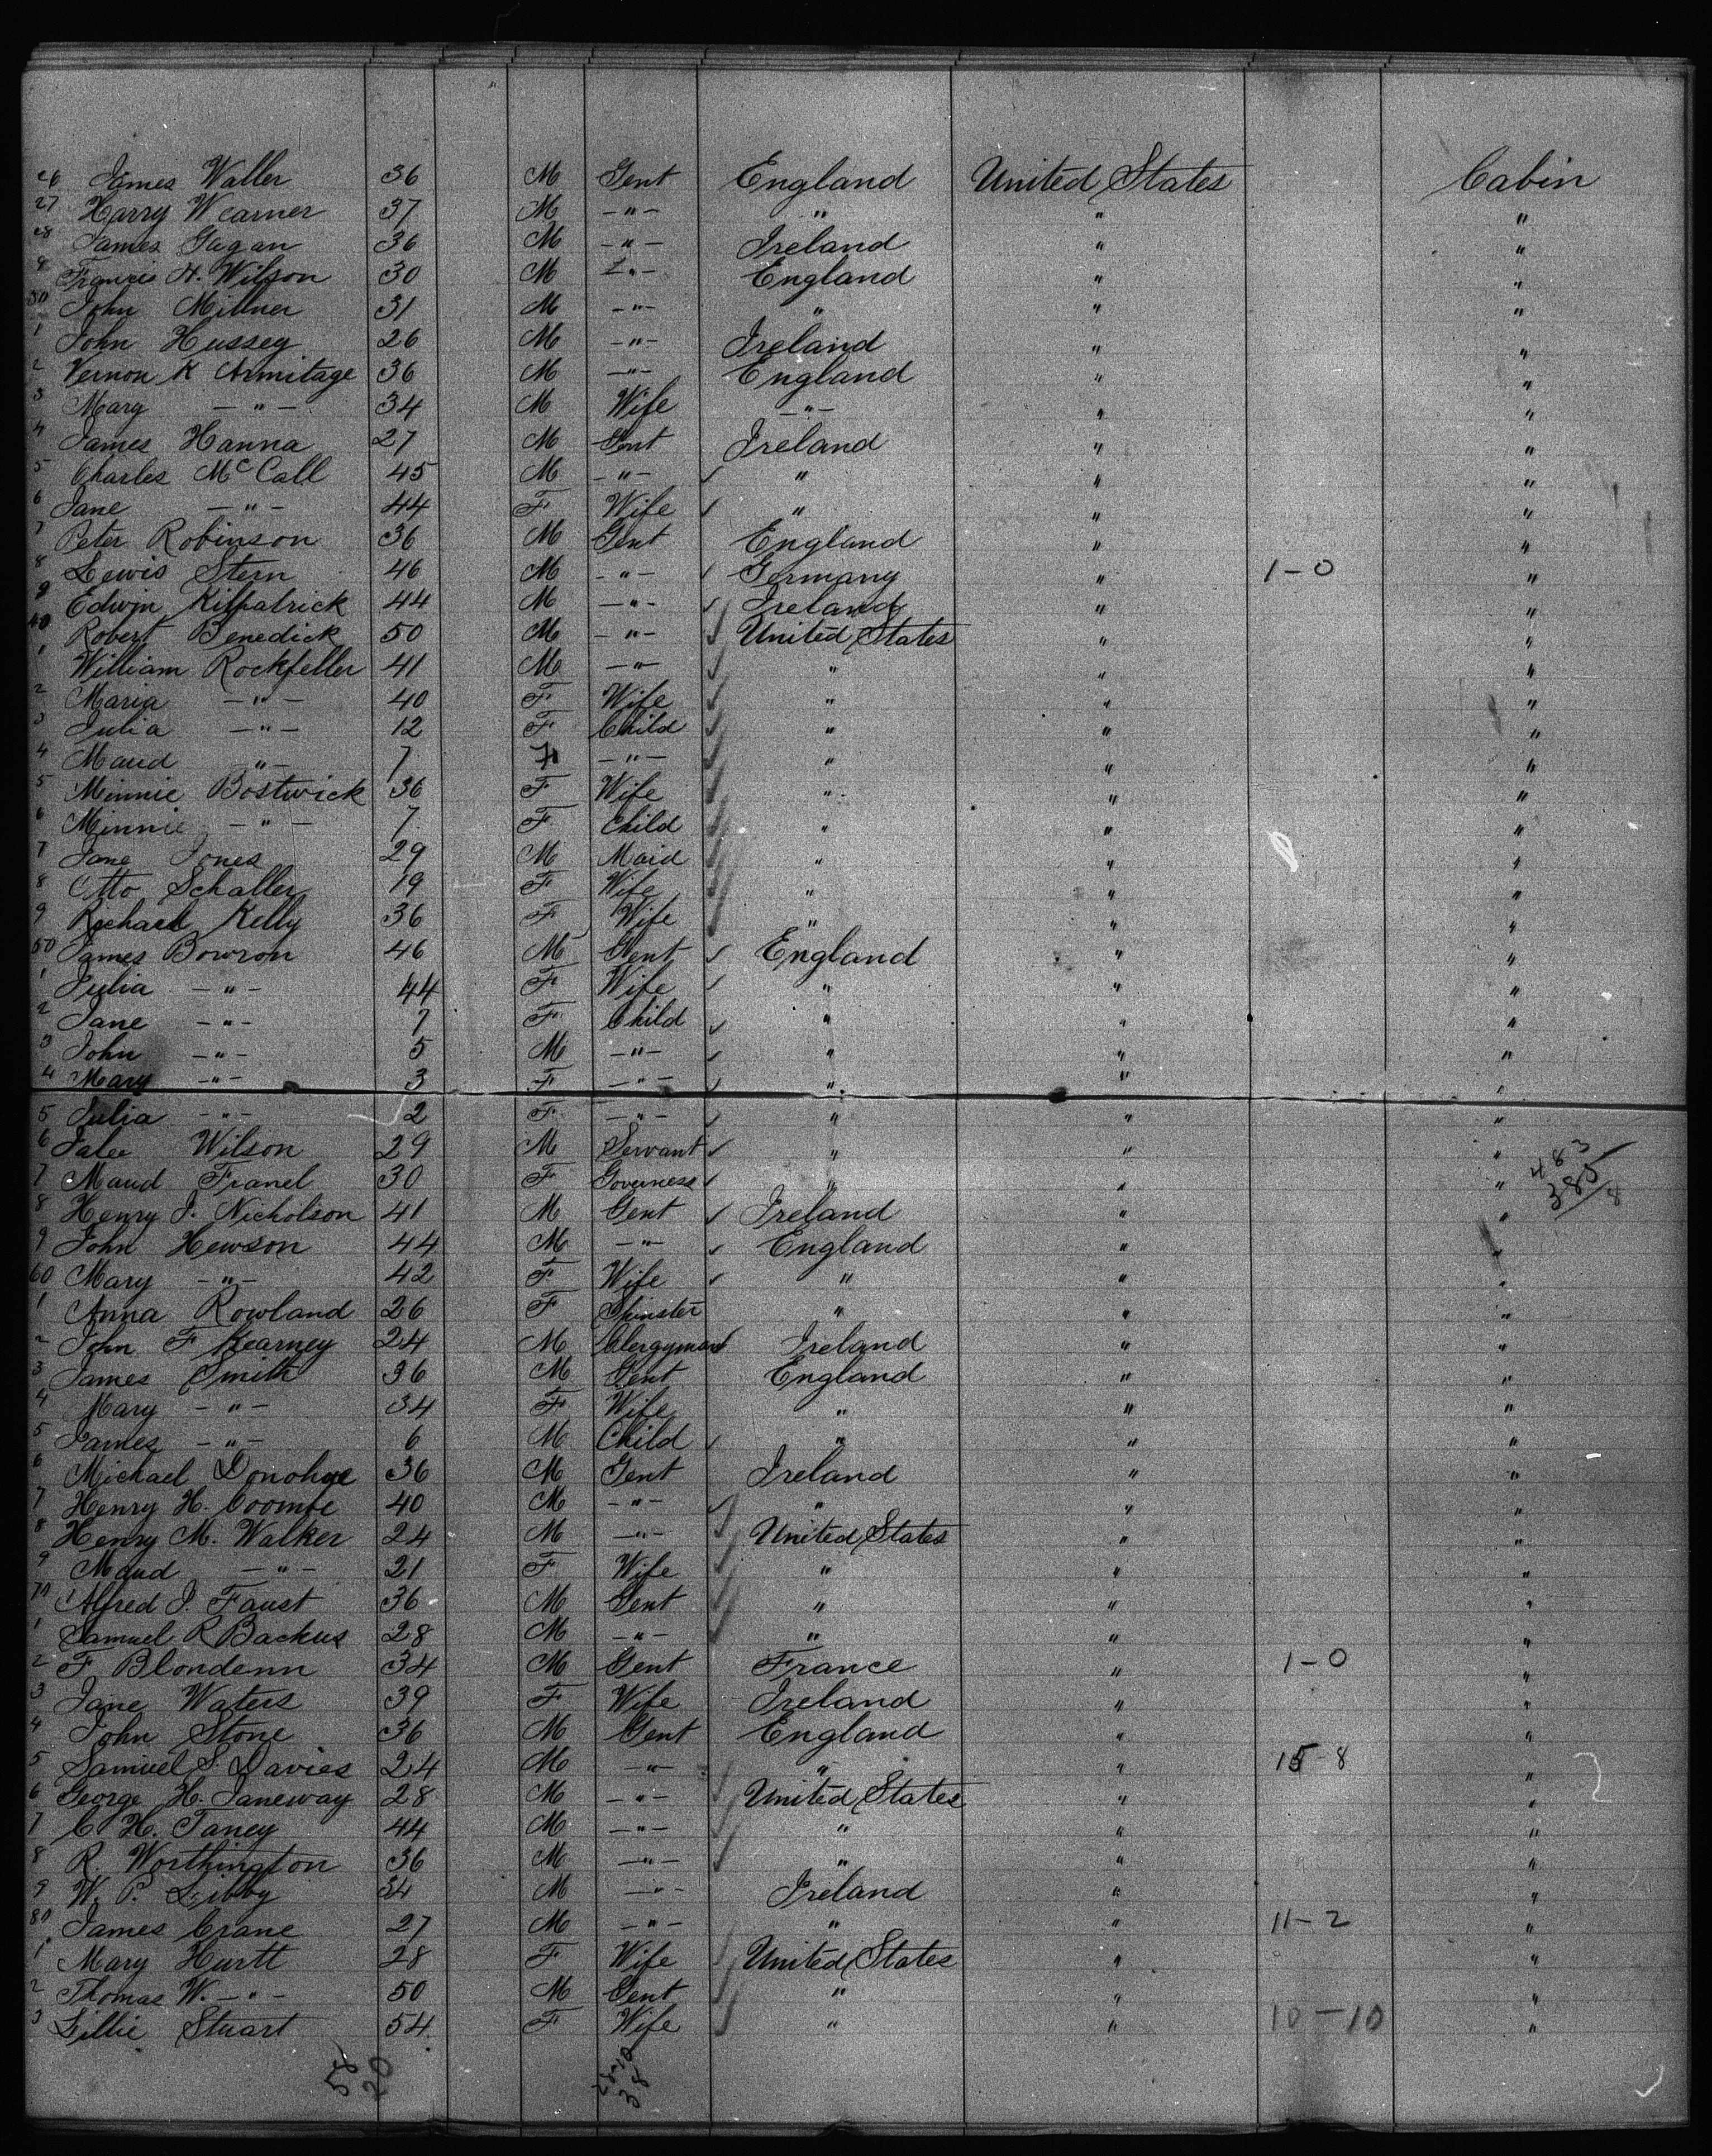 26 James Waller 36 M Gent England United States Cabin
27 Harry Wearner 37 M —"— " " "
28 James Gagan 36 M —"— Ireland " "
9 Francis H. Wilson 30 M —"— England " "
30 John Millner 31 M —"— " " "
1 John Hussey 26 M —"— Ireland " "
2 Vernon K Armitage 36 M —"— England " "
3 Mary —"— 34 M Wife —"— " "
4 James Hanna 27 M Gent Ireland " "
5 Charles McCall 45 M —"— ✓ " " "
6 Jane —"— 44 F Wife ✓ " " "
7 Peter Robinson 36 M Gent England " "
8 Lewis Stern 46 M —"— ✓ Germany " 1-0 "
9 Edwin Kilpatrick 44 M —"— ✓ Ireland " "
40 Robert Benedick 50 M —"— ✓ United States " "
1 William Rockfeller 41 M —"— ✓ " " "
2 Maria —"— 40 F Wife ✓ " " "
3 Julia —"— 12 F Child ✓ " " "
4 Maud —"— 7 F —"— ✓ " " "
5 Minnie Bostwick 36 F Wife ✓ " " "
6 Minnie —"— 7 F Child ✓ " " "
7 Jane Jones 29 M Maid ✓ " " "
8 Otto Schaller 19 F Wife ✓ " " "
9 Richard Kelly 36 F Wife ✓ " " "
50 James Bowron 46 M Gent ✓ England " "
1 Julia —"— 44 F Wife ✓ " " "
2 Jane —"— 7 F Child ✓ " " "
3 John —"— 5 M —"— ✓ " " "
4 Mary —"— 3 F —"— ✓ " " "
5 Julia —"— 2 F —"— ✓ " " "
6 Wilson 29 M Servant ✓ " " "
7 Maud Franel 30 F Governess ✓ " " "
483
385
8
8 Henry J. Nicholson 41 M Gent ✓ Ireland " "
9 John Hewson 44 M —"— ✓ England " "
60 Mary —"— 42 F Wife ✓ " " "
1 Anna Rowland 26 F Spinster " " "
2 John F Kearney 24 M Clergyman ✓ Ireland " "
3 James Smith 36 M Gent England " "
4 Mary —"— 34 F Wife " " "
5 James —"— 6 M Child ✓ " " "
6 Michael Donohoe 36 M Gent Ireland " "
7 Henry H. Coombe 40 M —"— ✓ " " "
8 Henry M. Walker 24 M —"— ✓ United States " "
9 Maud —"— 21 F Wife ✓ " " "
70 Alfred J. Faust 36 M Gent ✓ " " "
1 Samuel R Backus 28 M —"— ✓ " " "
2 F Blondenn 34 M Gent France " 1-0 "
3 Jane Waters 39 F Wife Ireland " "
4 John Stone 36 M Gent England " "
5 Samuel S. Davies 24 M —"— " " 15-8 "
6 George H. Janeway 28 M —"— ✓ United States " "
7 C. H. Taney 44 M —"— ✓ " " "
8 R. Worthington 36 M —"— ✓ " " "
9 W. P. Libby 34 M —"— Ireland " "
80 James Crane 27 M —"— " " 11-2 "
1 Mary Hurtt 28 F Wife ✓ United States " "
2 Thomas W. —"— 50 M Gent ✓ " " "
3 Lillie Stuart 54 F Wife ✓ " " 10-10 "
58
20
38